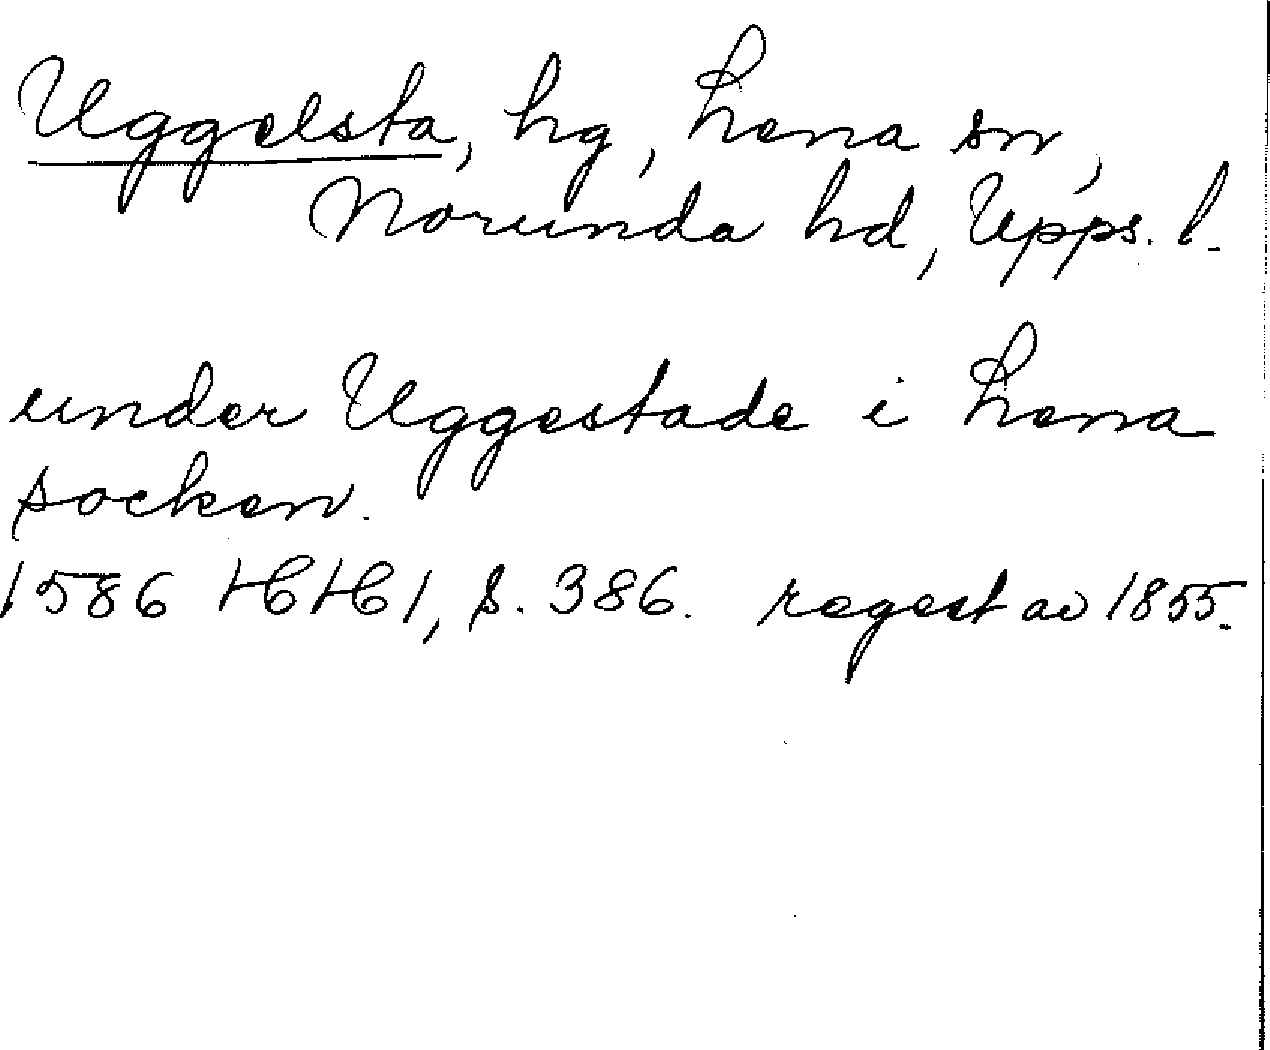 Uggelsta, hg, Lena sn,
Norunda hd, Upps. l.
under Uggestade i Lena
socken.
1586 HH 1, s. 386. regest av 1855.